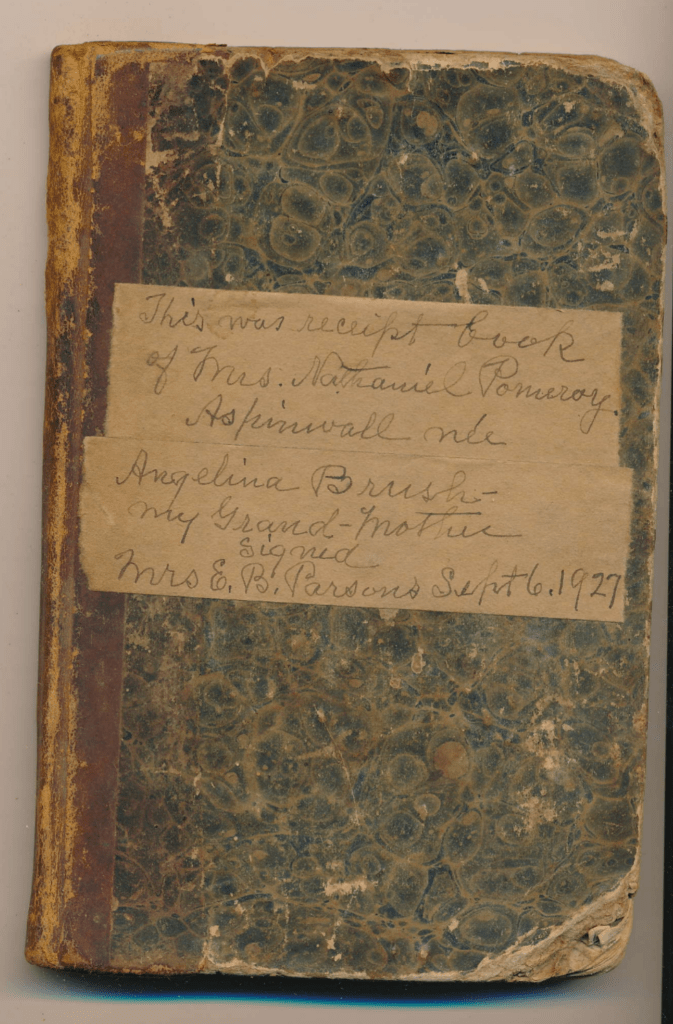 This was receipt book
of Mrs. Nathaniel Pomeroy.
Aspinwall née
Angelina Brush-
my Grand-Mother
signed
Mrs E. B. Parsons Sept 6. 1927